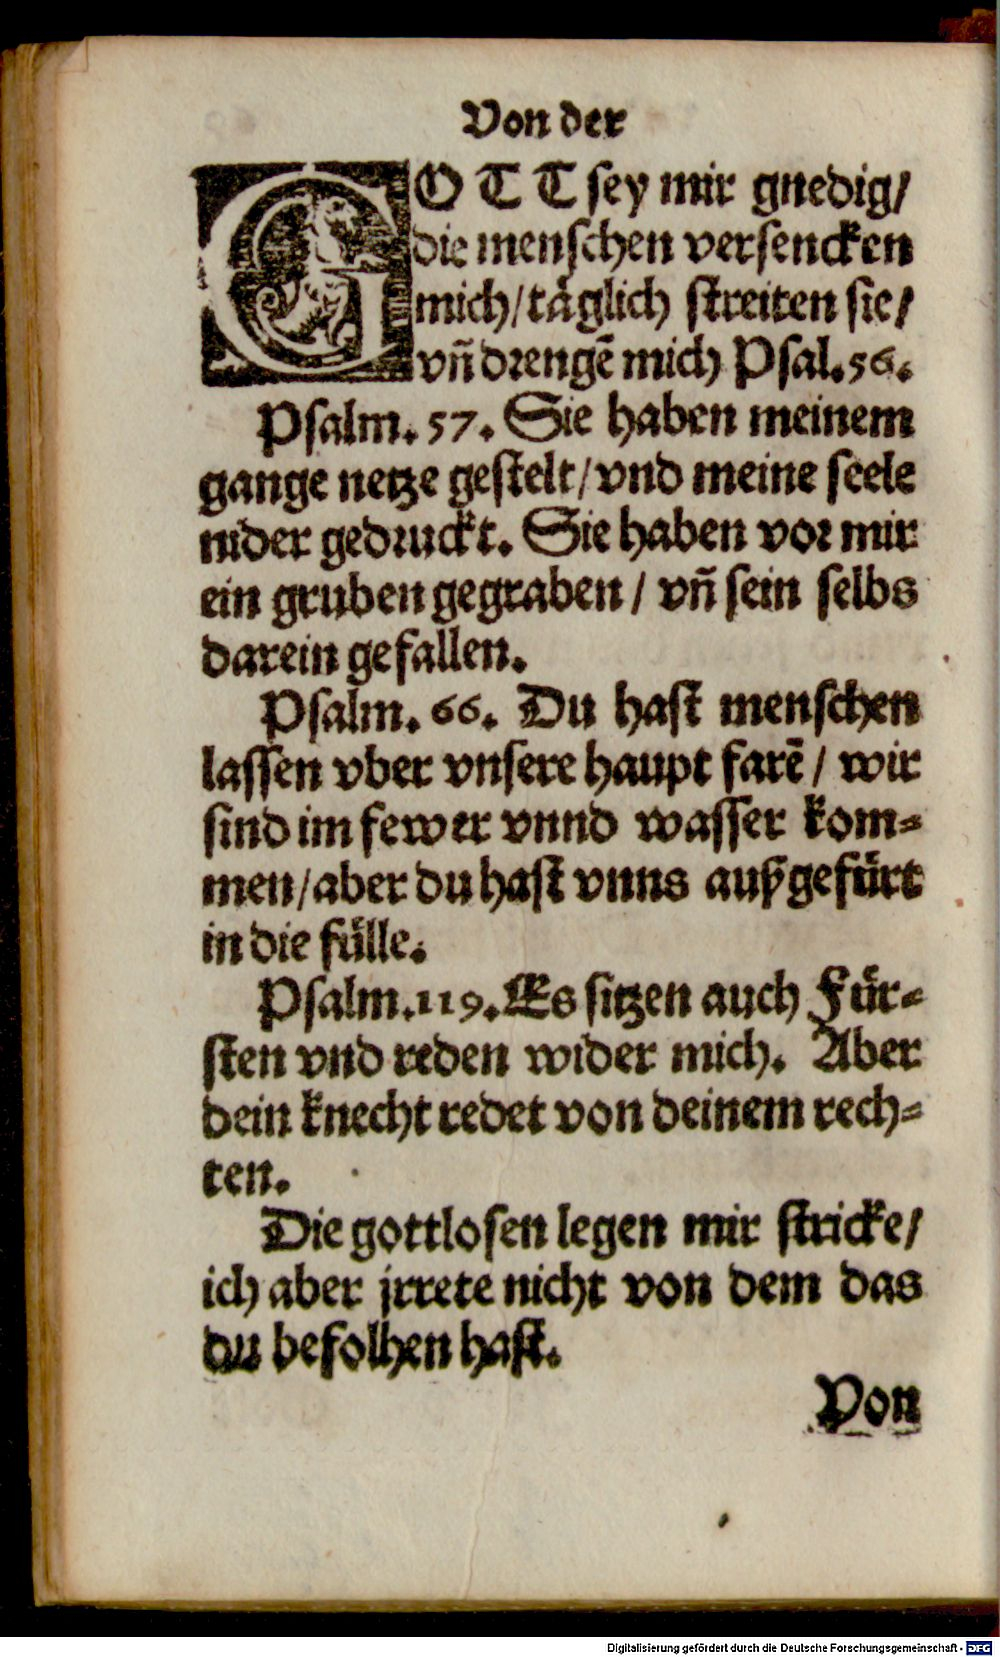 Von der
GOTT sey mir gnedig/
die menschen versencken
mich/täglich streiten sie/
vn̄ drengē mich Psal.56.
Psalm. 57. Sie haben meinem
gange netze gestelt/vnd meine seele
nider gedruckt. Sie haben vor mir
ein gruben gegraben / vn̄ sein selbs
darein gefallen.
Psalm. 66. Du hast menschen
lassen vber vnsere haupt farē / wir
sind im fewer vnnd wasser kom=
men/aber du hast vnns außgefürt
in die fülle.
Psalm.119.Es sitzen auch Für=
sten vnd reden wider mich. Aber
dein knecht redet von deinem rech=
ten.
Die gottlosen legen mir stricke/
ich aber jrrete nicht von dem das
du befolhen hast.
Von
Digitalisierung gefördert durch die Deutsche Forschungsgemeinschaft - DFG